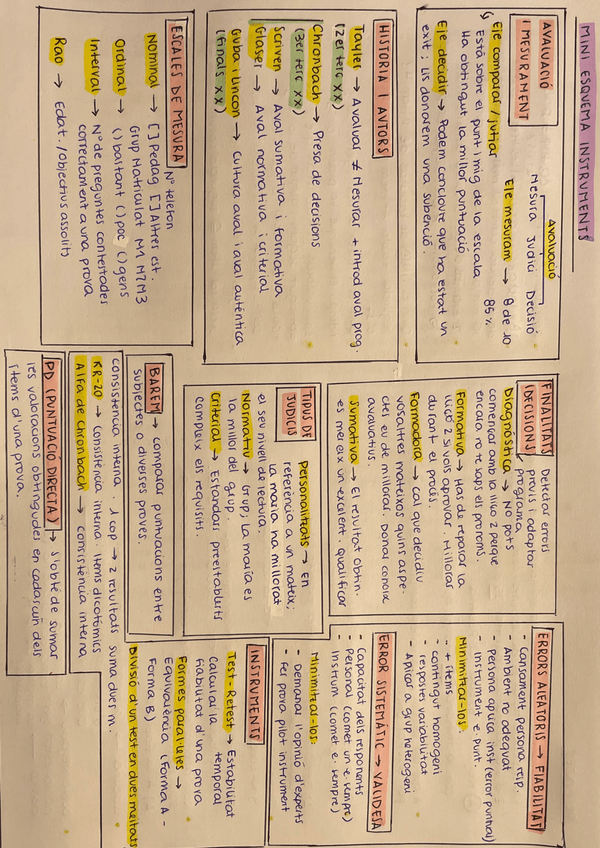 MINI ESQUEMA INSTRUMENTS
AVALUACIÓ
I MESURAMENT
Avaluació
Mesura Judici Decisió
Ele mesuram → 8 de 10
85%
Eje comparar / jutjar
Està sobre el punt i mig de la escala
Ha obtingut la millor puntuació
Eje decidir → Podem concloure que ha estat un
exit; lis donarem una subenció.
HISTORIA I AUTORS
Tayler → Avaluar ≠ Mesurar + introd aval prog.
(2er terç XX)
Chronbach → Presa de decisions
(3er terç XX)
Scriven → Aval sumativa i formativa
Glaser → Aval normativa i criterial
Guba i Lincon → Cultura aval i aval autèntica
(finals XX)
ESCALES DE MESURA
Nº telefon
Nominal → [] Pedag [] Altres est.
Grup Matriculat M1 M2 M3
Ordinal → () baltant () poc () gens
Interval → Nº de preguntes contestades
correctament a una prova
Rao → Edat. / Objectius assolits
FINALITATS
(DECISIONS)
Detectar errors
previs i adaptar
programa
Diagnòstica → No pots
començar amb la lliço 2 perque
encara no te saps els pronoms.
Formativa → Has de reparar la
lliço 2 si vols aprovar. Millorar
durant el procés.
Formadora → cal que decidiu
vosaltres mateixos quins aspe-
ctes eu de millorar. Donar coneix
avaluatius.
Sumativa → El resultat obtin.
es mereix un excelent. qualificar
TIPUS DE
JUDICIS
Personalitzats → En
referència a un mateix,
la maria ha millorat
el seu nivell de lectura.
Normatiu → Grup, La maria es
la millor del grup.
Criterial → Estandars preestablerts
compleix els requisits.
BAREM → comparar puntuacions entre
subjectes o diverses proves.
consistencia interna . 1 cop → 2 resultats suma dues m.
KR-20 → Consistència interna. Items dicotòmics
Alfa de Chronbach → consistència interna
PD (PUNTUACIÓ DIRECTA) → S'obté de sumar
les valoracions obtingudes en cadascun dels
ítems d'una prova.
ERRORS ALEATORIS → FIABILITAT
- cansament persona resp.
- Ambient no adequat
- Persona aplica inst (error puntual)
- Instrument e. punt.
Minimitzar-los:
- + ítems
- contingut homogeni
- respostes variabilitat
- Aplicar a grup heterogeni
ERROR SISTEMÀTIC → VALIDESA
- Capacitat dels responents
- Personal (comet un e. sempre)
- Instrum (comet e. sempre)
Minimitzar-los:
- Demanar l'opinió d'experts
- Fer prova pilot instrument
INSTRUMENTS
Test-Retest → Estabilitat
temporal
Calcular la
fiabilitat d'una prova
Formes paral·leles →
Equivalència (Forma A -
Forma B)
Divisió d'un test en dues meitats